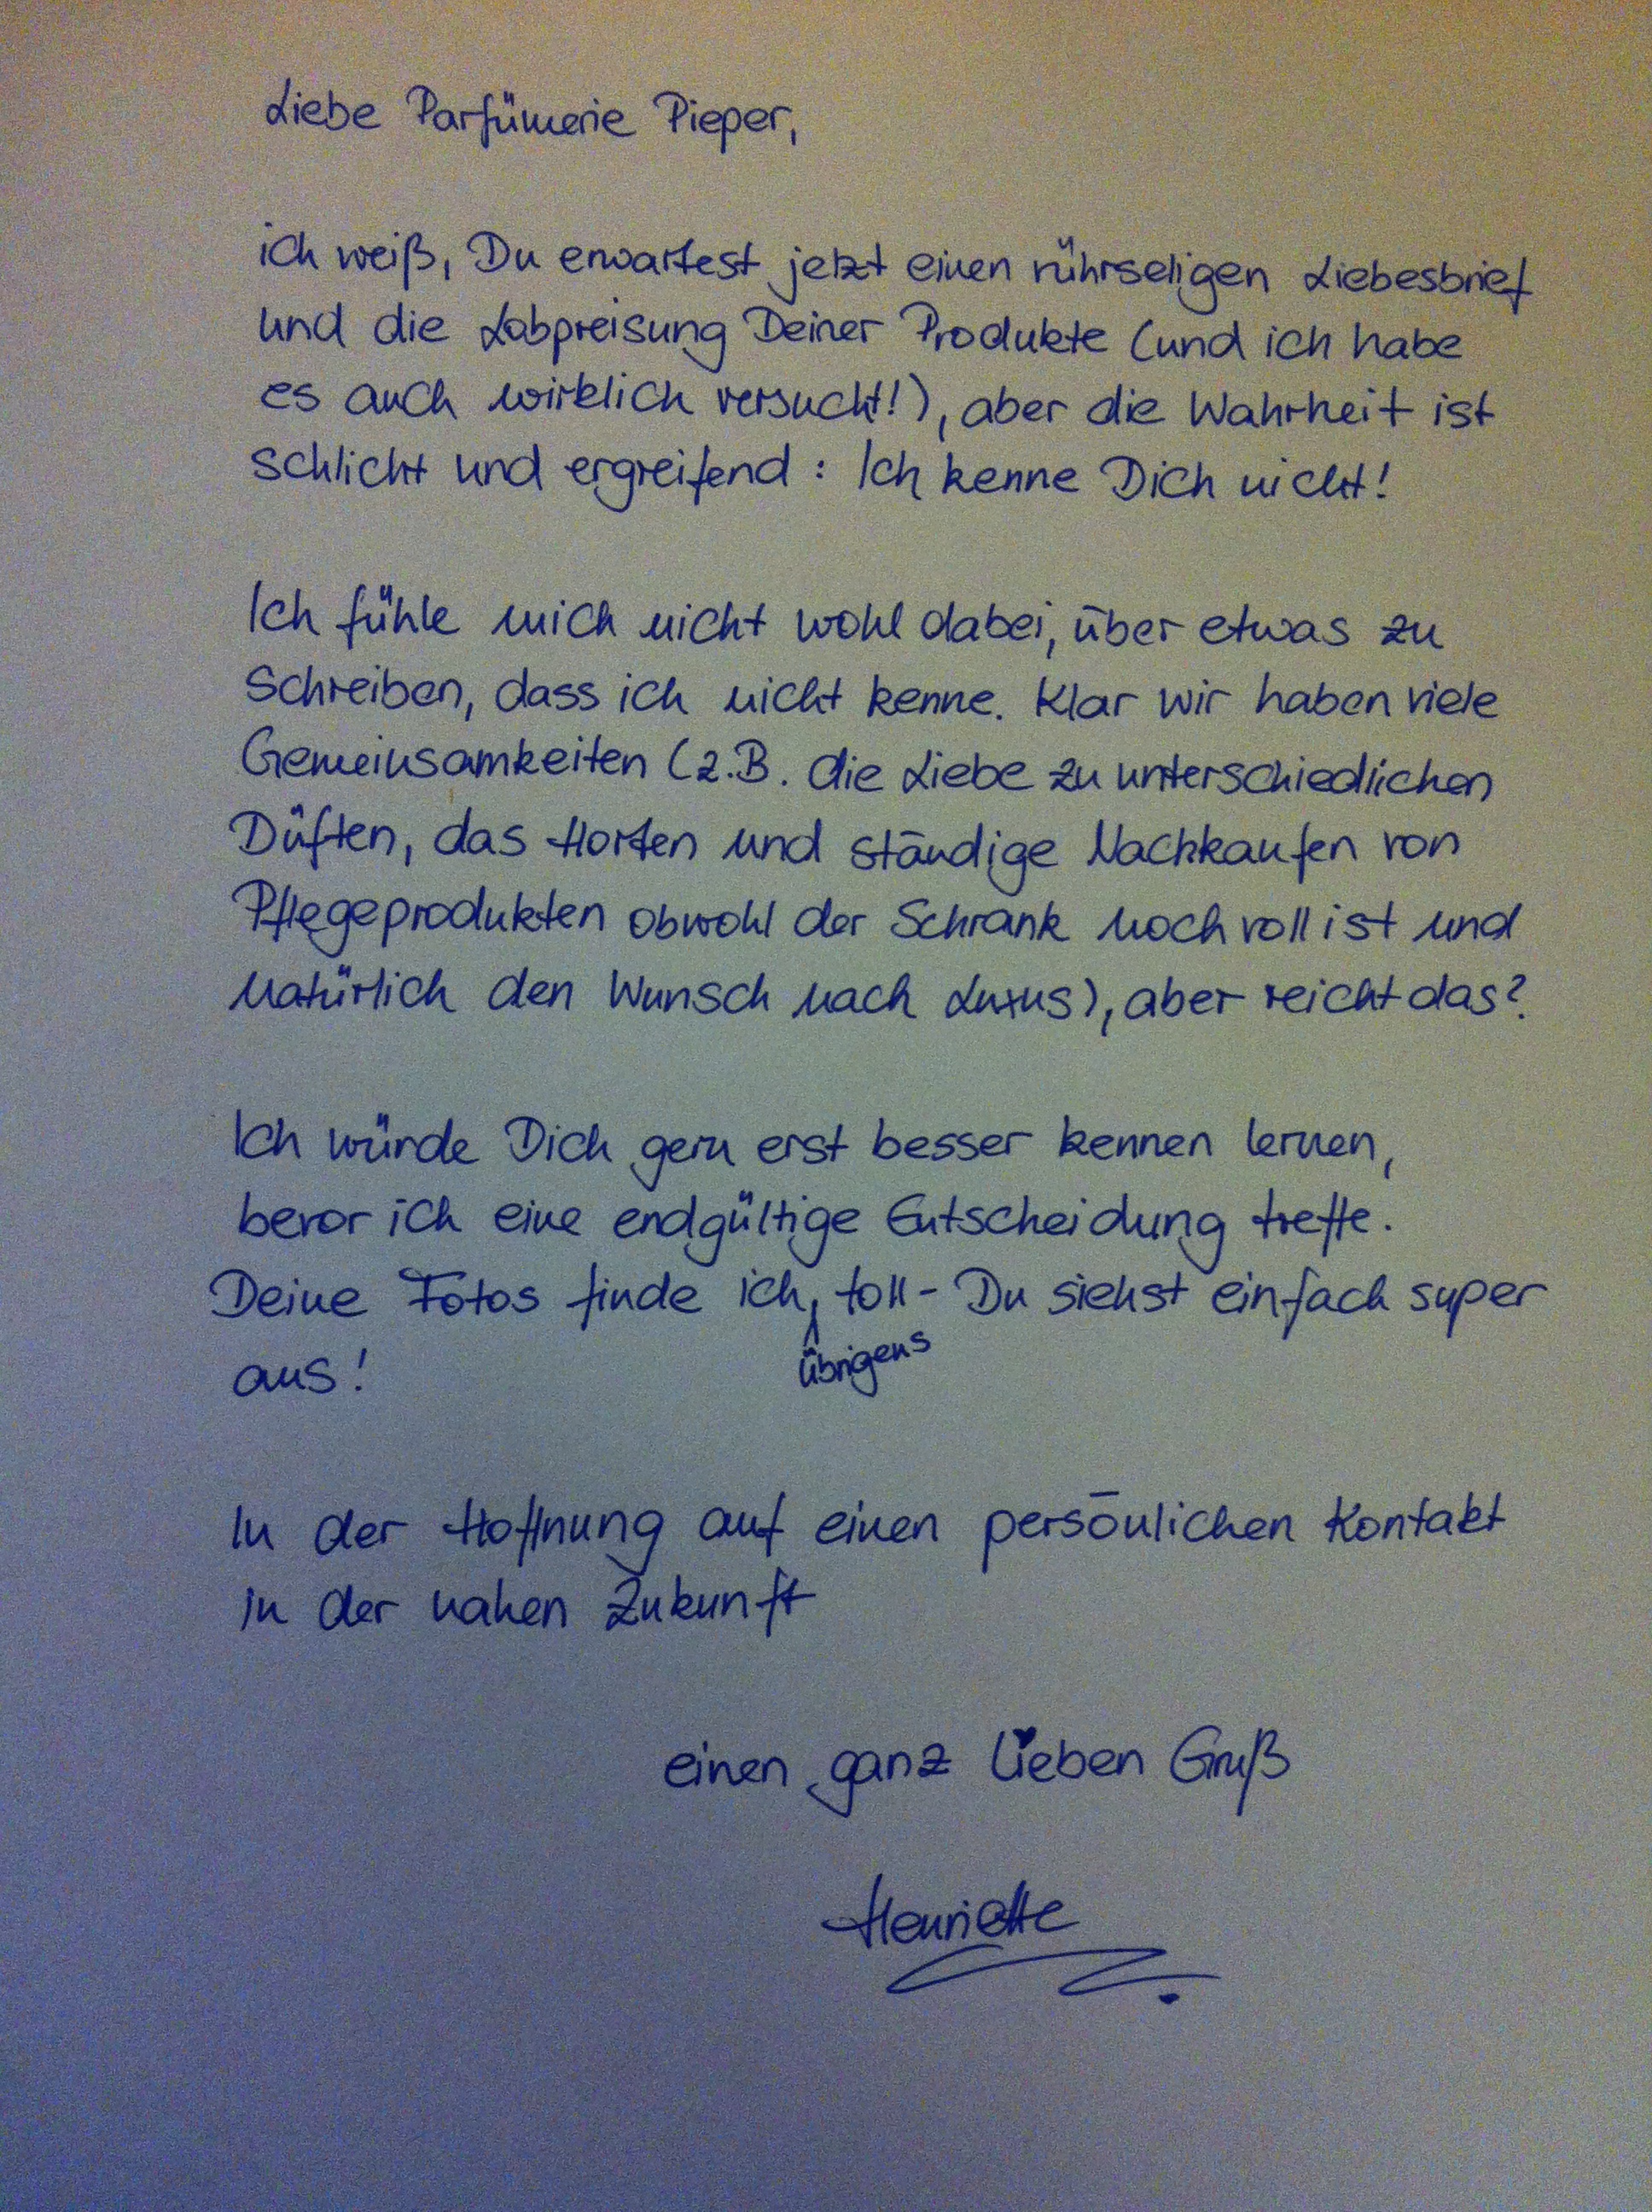 Liebe Parfümerie Pieper,
ich weiß, Du erwartest jetzt einen rührseligen Liebesbrief
und die Lobpreisung Deiner Produkte (und ich habe
es auch wirklich versucht!), aber die Wahrheit ist
schlicht und ergreifend: Ich kenne Dich nicht!
Ich fühle mich nicht wohl dabei, über etwas zu
schreiben, dass ich nicht kenne. Klar wir haben viele
Gemeinsamkeiten (z.B. die Liebe zu unterschiedlichen
Düften, das Horten und ständige Nachkaufen von
Pflegeprodukten obwohl der Schrank noch voll ist und
natürlich den Wunsch nach Luxus), aber reicht das?
Ich würde Dich gern erst besser kennen lernen,
bevor ich eine endgültige Entscheidung treffe.
Deine Fotos finde ich toll - Du siehst einfach super
übrigens
aus!
In der Hoffnung auf einen persönlichen Kontakt
in der nahen Zukunft
einen ganz lieben Gruß
Henriette